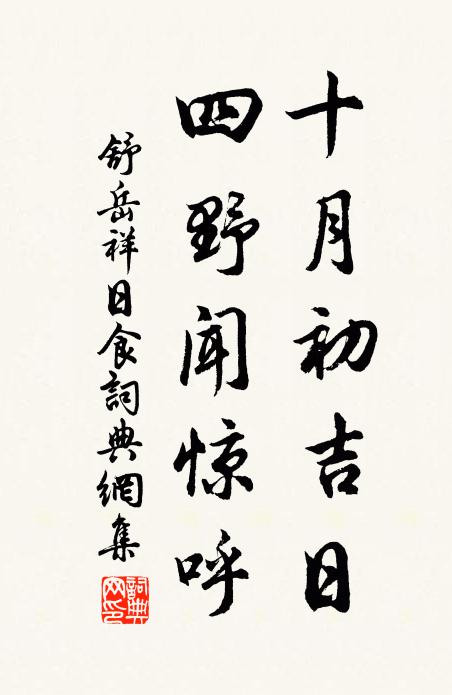 十月初吉日
四野闻惊呼
舒岳祥日食詞典網集
詞典網印